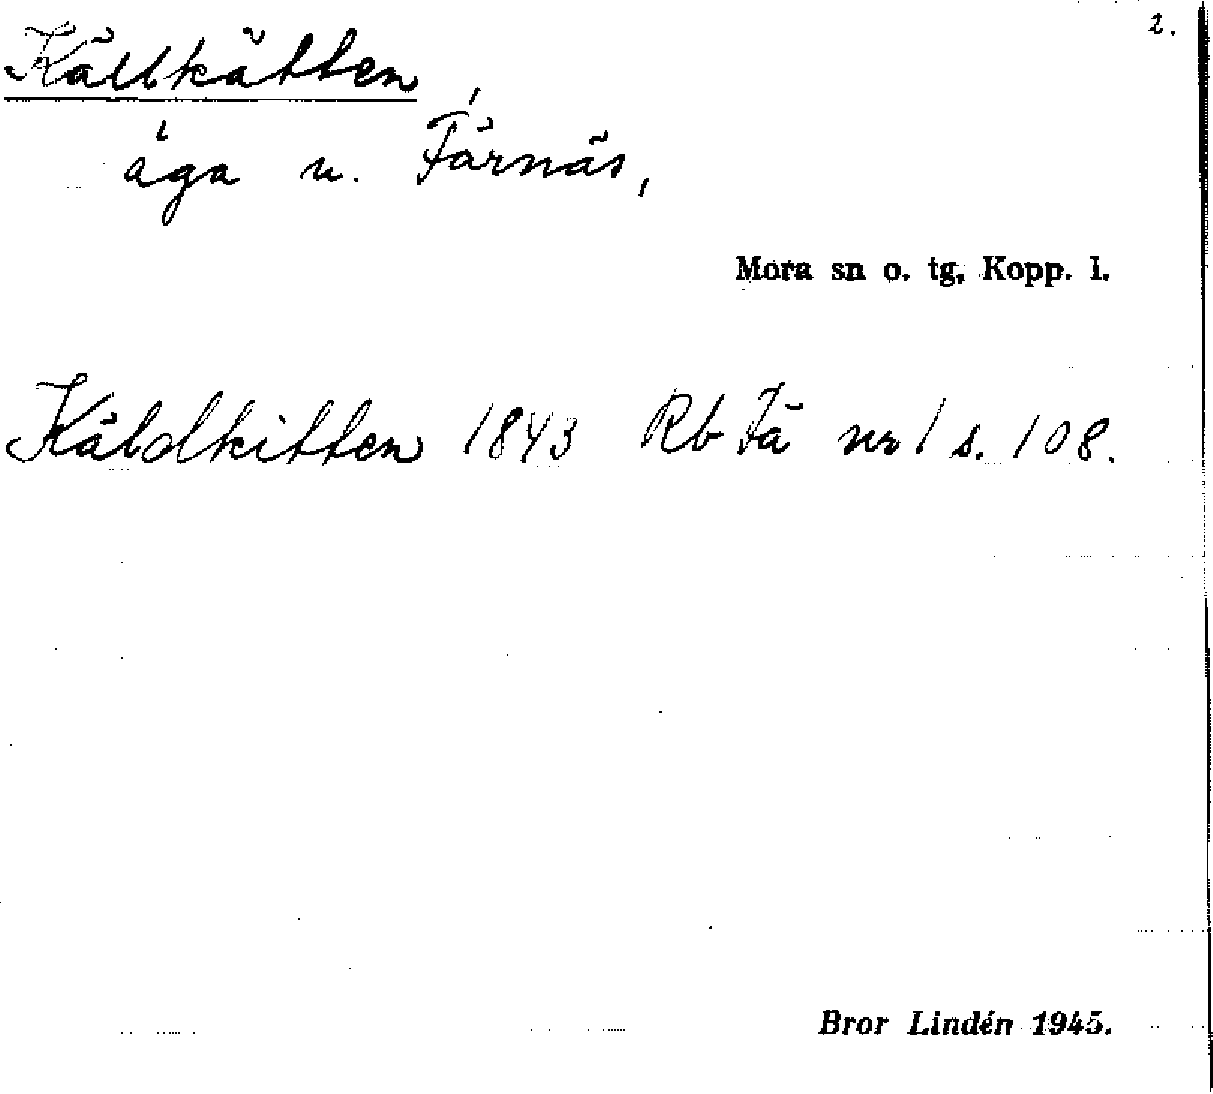 2.
Källkätten,
äga u. Färnäs,
Mora sn o. tg, Kopp. l.
Käldkitten 1843 Rb Fä nr 1 s. 108.
Bror Lindén 1945.